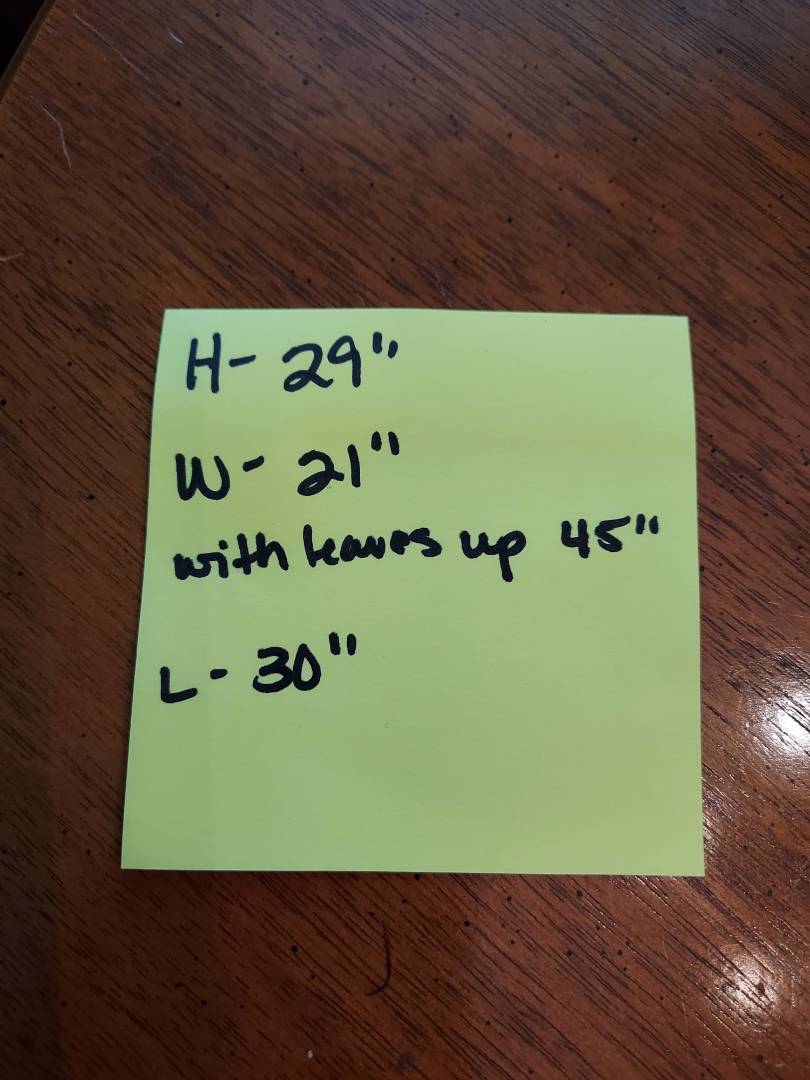 H- 29"
W- 21"
with leaves up 45"
L- 30"